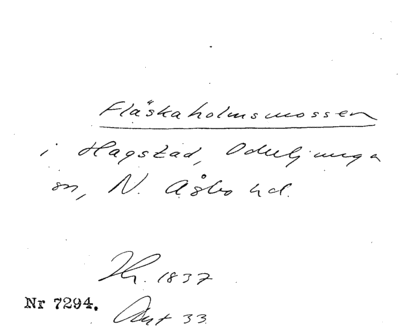 Fläskaholmsmossen
i Hagstad, Oderljunga
sn, N. Åsbo hd.
Hr. 1837
Nr 7294. Ant 33